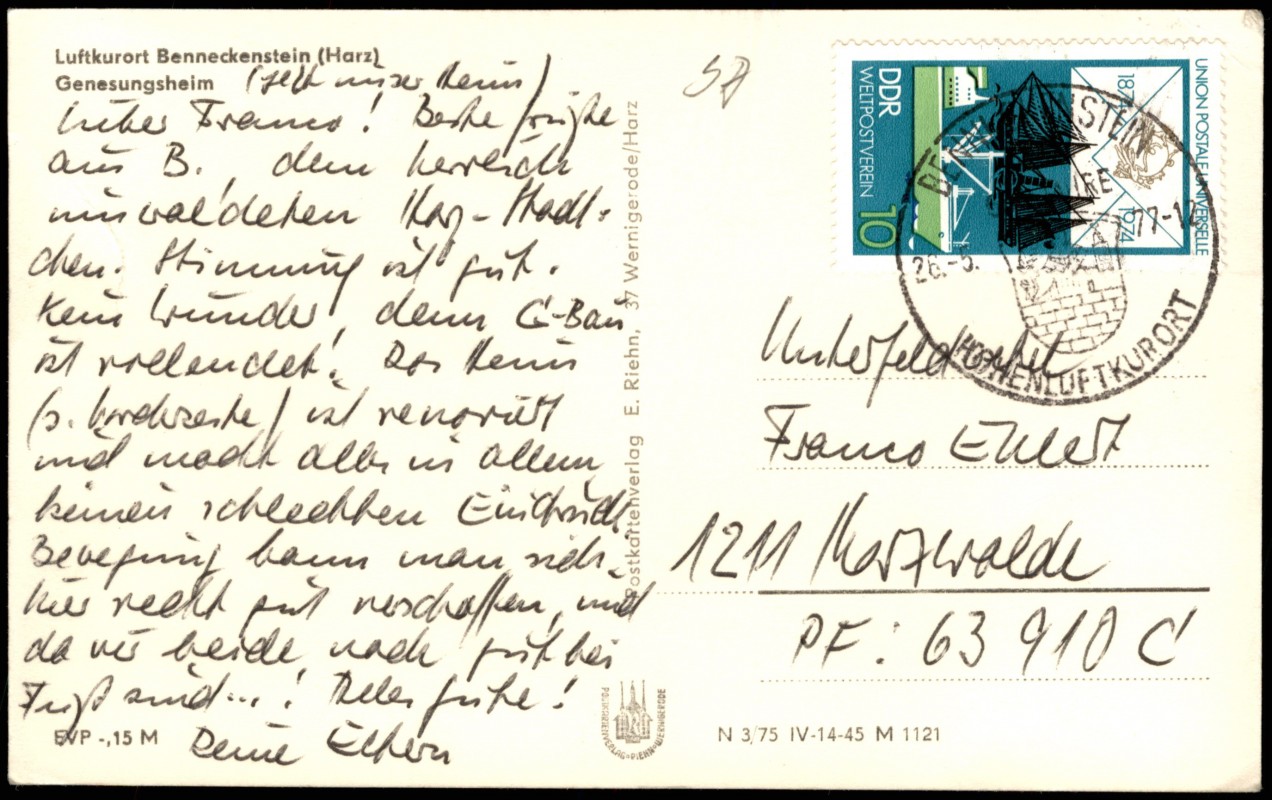 Luftkurort Benneckenstein (Harz)
Genesungsheim
(jetzt unser Heim)
Lieber Franco! Beste Grüße
aus B., dem herrlich
umwaldeten Harz-Städt-
chen. Stimmung ist gut.
Kein Wunder, denn G-Bau
ist vollendet! Das Heim
(s. Vorderseite) ist renoviert
und macht alles in allem
keinen schlechten Eindruck.
Bewegung kann man sich
hier recht gut verschaffen, und
da wir beide noch gut bei
Fuß sind...! Alles Gute!
Deine Eltern
EVP -,15 M
Postkartenverlag E. Riehn, 37 Wernigerode/Harz
POSTKARTENVERLAG RIEHN WERNIGERODE
N 3/75 IV-14-45 M 1121
57
DDR
WELTPOSTVEREIN
10
1974
UNION POSTALE UNIVERSELLE
26.-5. 77-18
HÖHENLUFTKURORT
Unterfeldwebel
Franco Ehlert
1211 Harzwalde
PF: 63 910 C